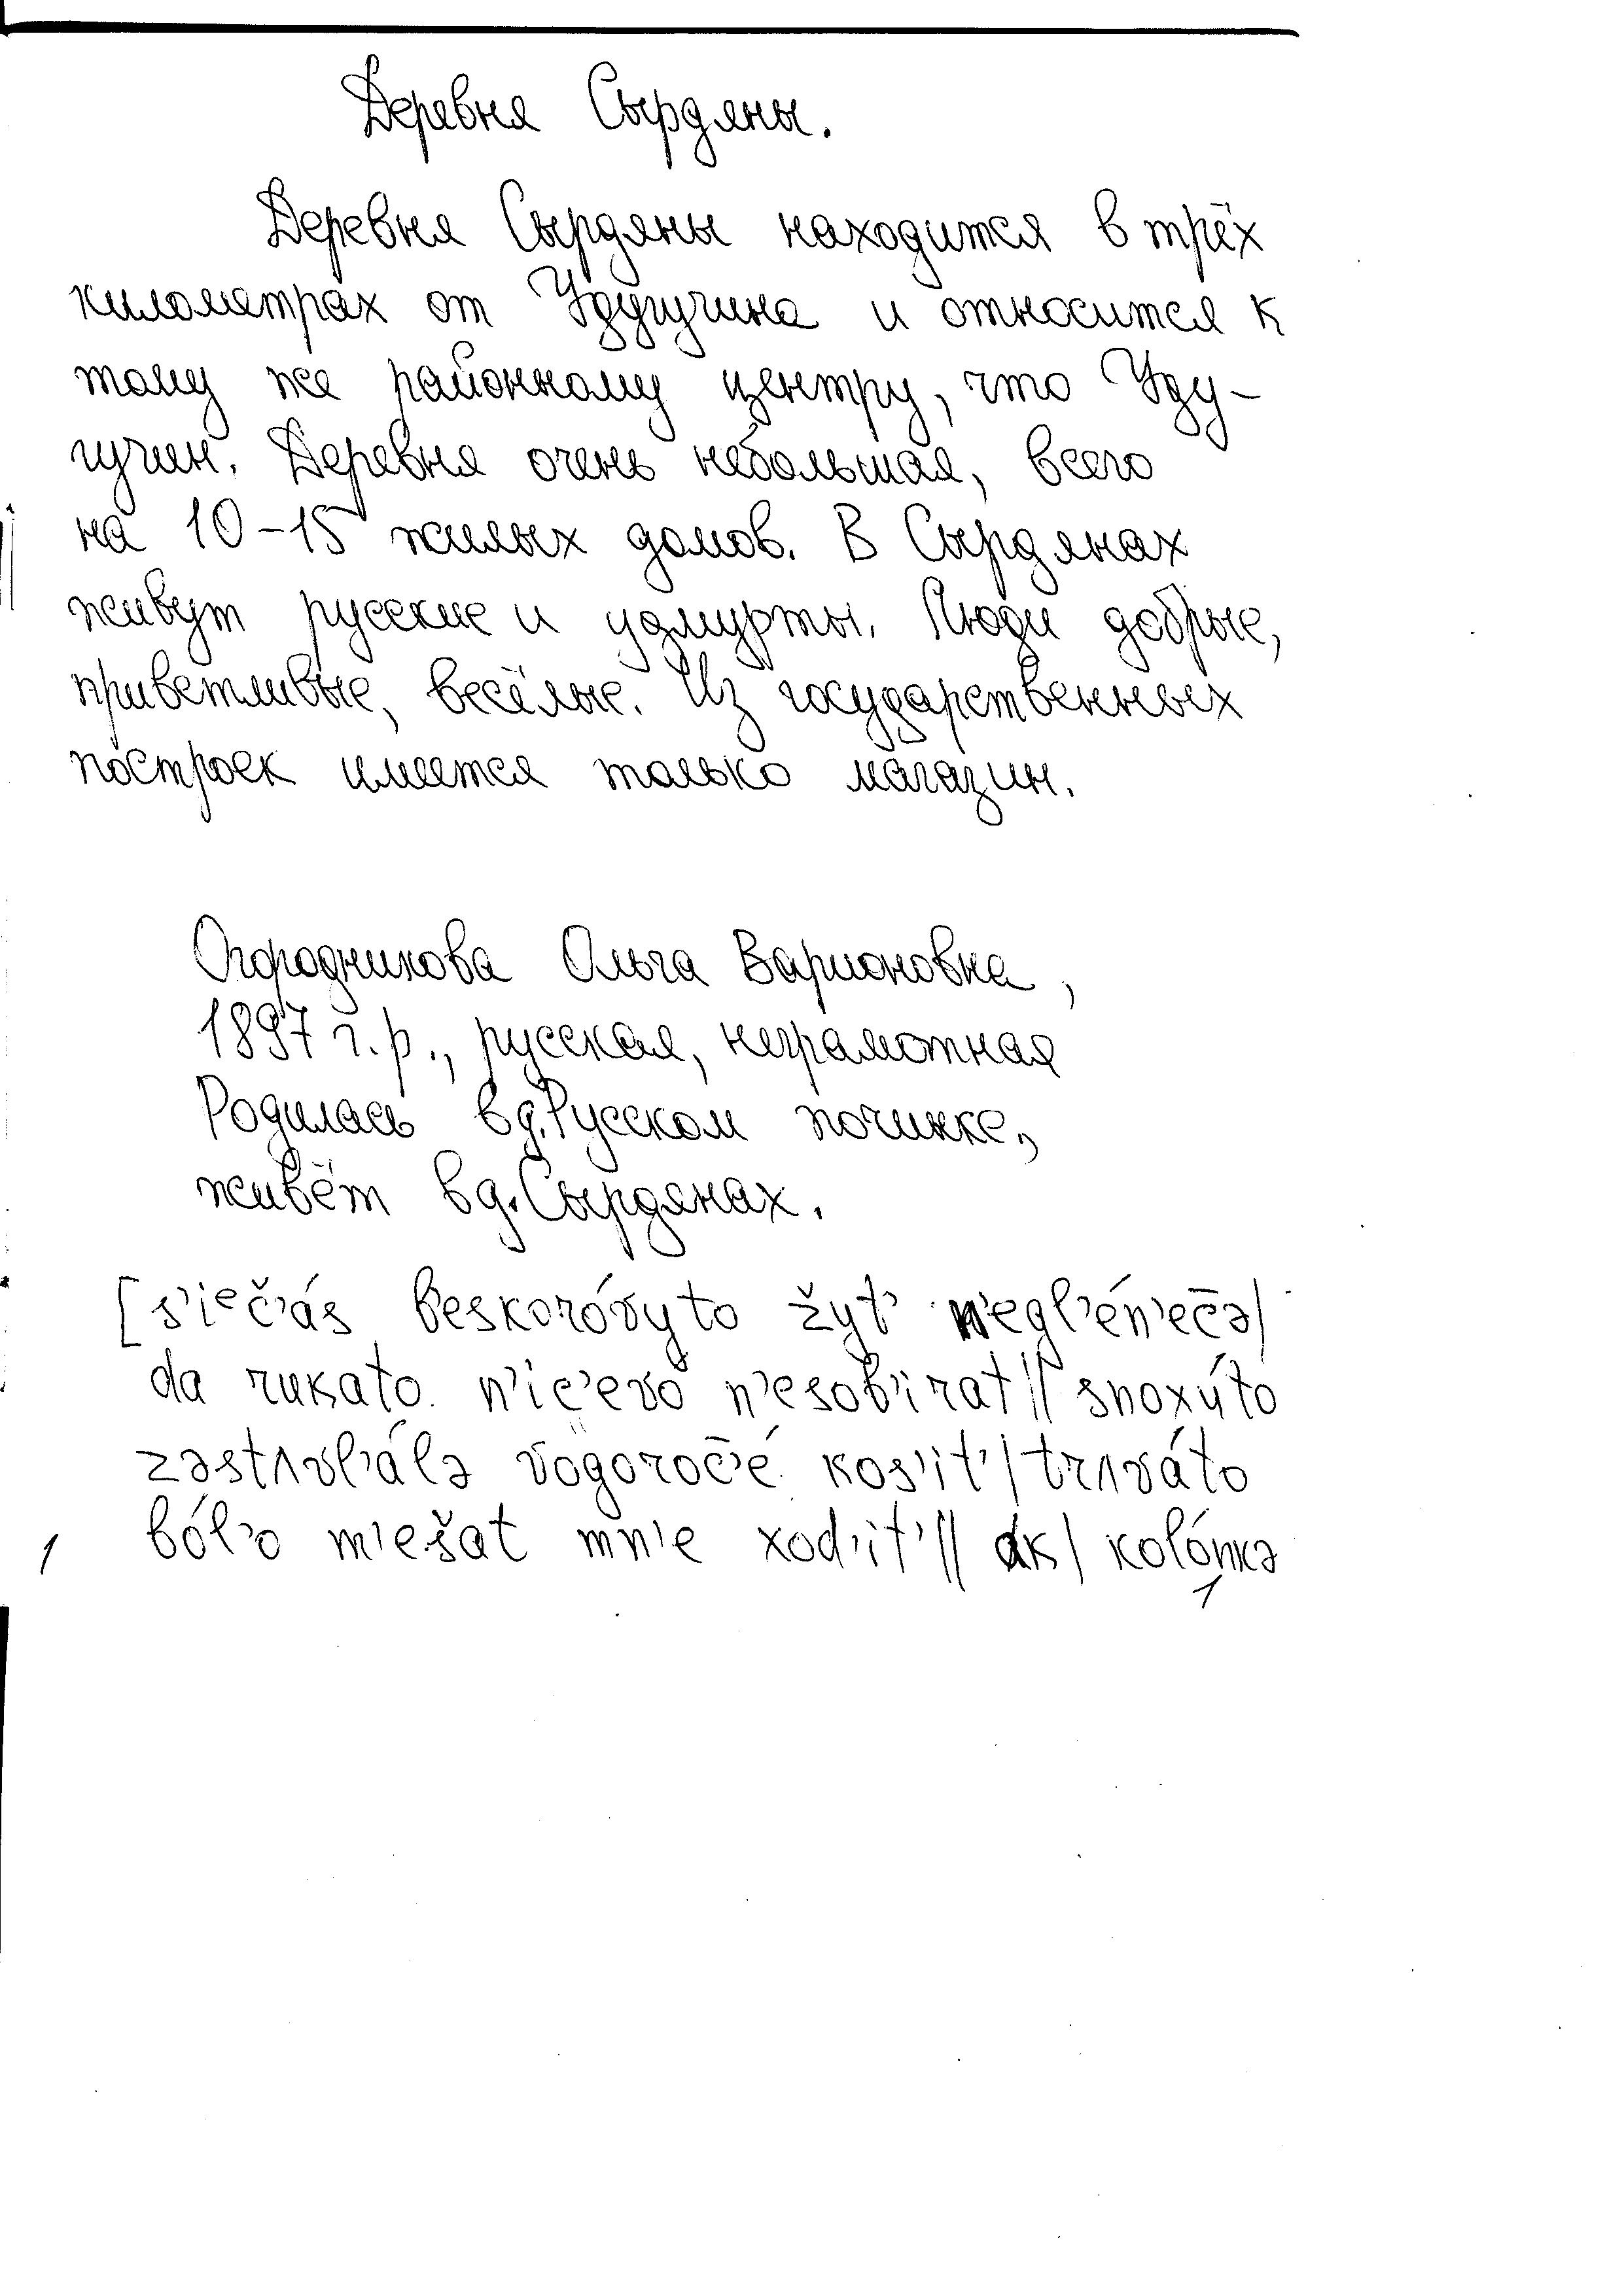 Деревня Сырдяны.
Деревня Сырдяны находится в трёх
километрах от Удугучина и относится к
тому же районному центру, что Уду-
гучин. Деревня очень небольшая, всего
на 10-15 жилых домов. В Сырдянах
живут русские и удмурты. Люди добрые,
приветливые, весёлые. Из государственных
построек имеется только магазин.
Огородникова Ольга Варионовна,
1897 г.р., русская, неграмотная
Родилась в д. Русском починке,
живёт в д. Сырдянах.
[s'iᵉč'ás beskoróvyto žyt' n'egl'én'ec̄ə|
da rukato n'ič'evo n'esob'irat || snoxúto
zəstʌvl'álə vogoroč'é kos'it' | trʌváto
ból'o m'ešat mn'e xod'it' || ak | kolónkə